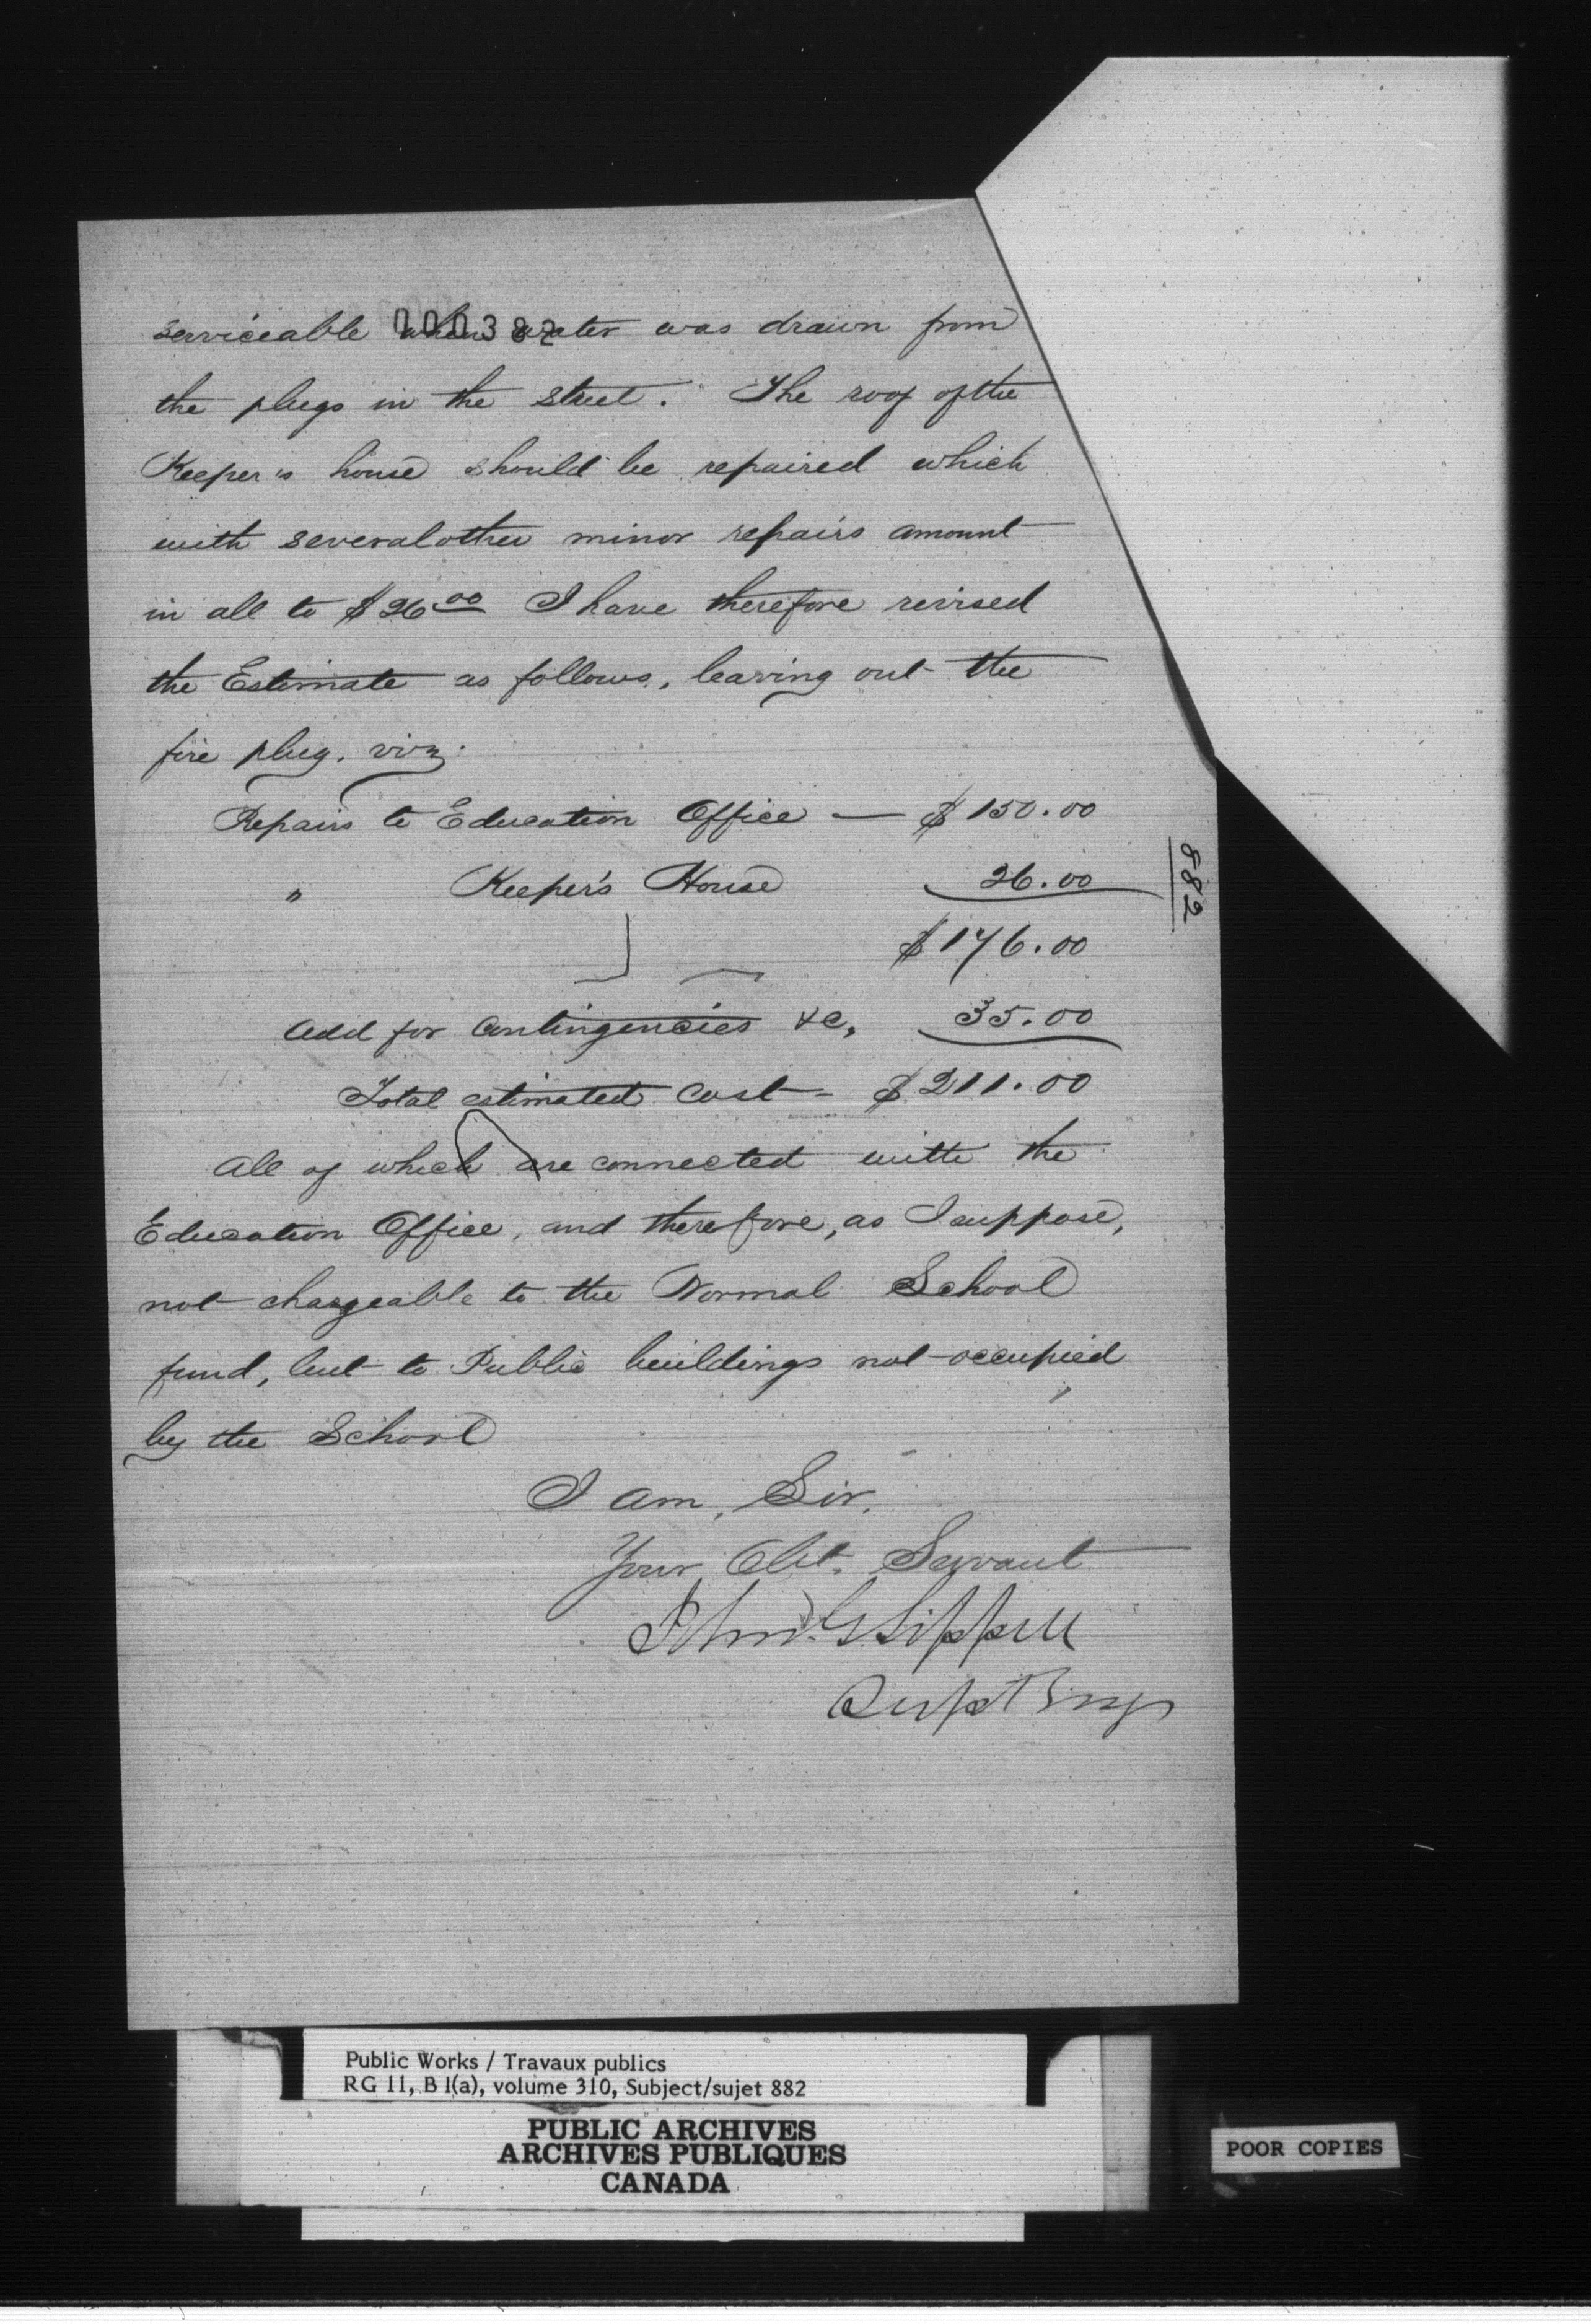 000382
serviceable when water was drawn from
the plugs in the street. The roof of the
Keeper's house should be repaired which
with several other minor repairs amount
in all to $26.00 I have therefore revised
the Estimate as follows, leaving out the
fire plug. viz.
Repairs to Education Office — $150.00
" Keeper's House 26.00
$176.00
Add for Contingencies &c, 35.00
Total estimated Cost - $211.00
All of which are connected with the
Education Office, and therefore, as I suppose,
not chargeable to the Normal School
fund, but to Public buildings not occupied
by the School
I am, Sir,
Your Obt. Servant
John G Sippell
Supt Engr
882
Public Works / Travaux publics
RG 11, B 1(a), volume 310, Subject/sujet 882
PUBLIC ARCHIVES
ARCHIVES PUBLIQUES
CANADA
POOR COPIES